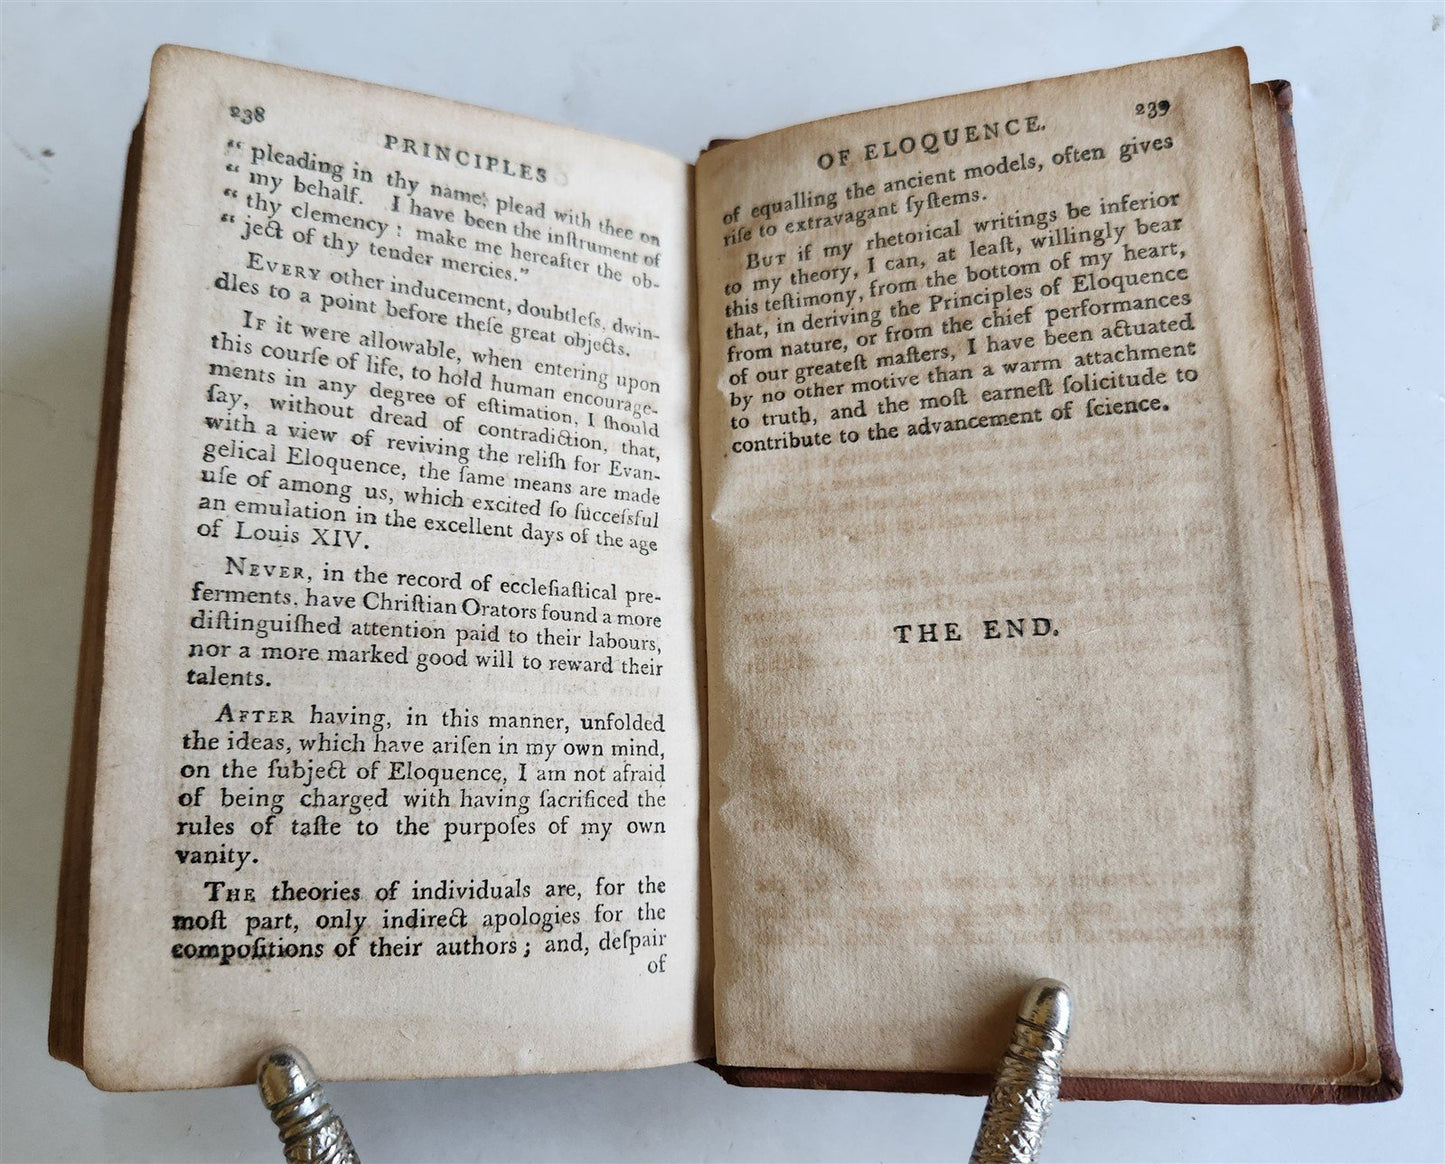 238
PRINCIPLES
“ pleading in thy name; plead with thee on
“ my behalf. I have been the inſtrument of
“ thy clemency: make me hereafter the ob-
“ ject of thy tender mercies.”
EVERY other inducement, doubtleſs, dwin-
dles to a point before theſe great objects.
IF it were allowable, when entering upon
this courſe of life, to hold human encourage-
ments in any degree of eſtimation, I ſhould
ſay, without dread of contradiction, that,
with a view of reviving the reliſh for Evan-
gelical Eloquence, the ſame means are made
uſe of among us, which excited ſo ſucceſsful
an emulation in the excellent days of the age
of Louis XIV.
NEVER, in the record of eccleſiaſtical pre-
ferments, have Chriſtian Orators found a more
diſtinguiſhed attention paid to their labours,
nor a more marked good will to reward their
talents.
AFTER having, in this manner, unfolded
the ideas, which have ariſen in my own mind,
on the ſubject of Eloquence, I am not afraid
of being charged with having ſacrificed the
rules of taſte to the purpoſes of my own
vanity.
THE theories of individuals are, for the
moſt part, only indirect apologies for the
compoſitions of their authors; and, deſpair
of
239
OF ELOQUENCE.
of equalling the ancient models, often gives
riſe to extravagant ſyſtems.
BUT if my rhetorical writings be inferior
to my theory, I can, at leaſt, willingly bear
this teſtimony, from the bottom of my heart,
that, in deriving the Principles of Eloquence
from nature, or from the chief performances
of our greateſt maſters, I have been actuated
by no other motive than a warm attachment
to truth, and the moſt earneſt ſolicitude to
contribute to the advancement of ſcience.
THE END.